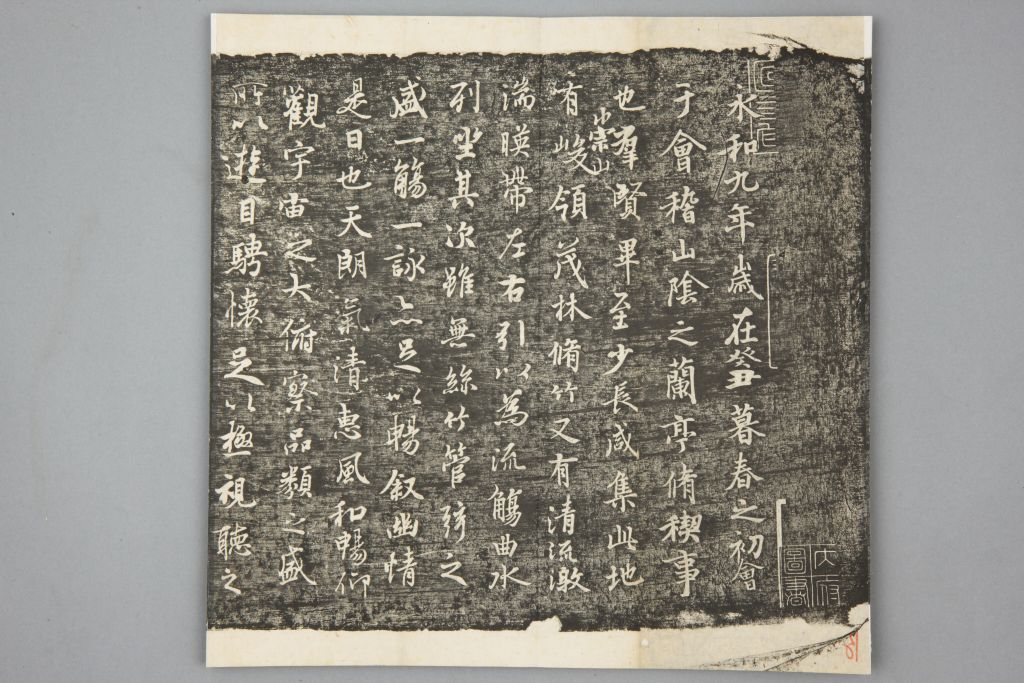 永和九年歲在癸丑暮春之初會
于會稽山陰之蘭亭脩稧事
也羣賢畢至少長咸集此地
有崇山峻領茂林脩竹又有清流激
湍暎帶左右引以為流觴曲水
列坐其次雖無絲竹管弦之
盛一觴一詠亦足以暢敘幽情
是日也天朗氣清惠風和暢仰
觀宇宙之大俯察品類之盛
所以遊目騁懷足以極視聽之
天府
圖書